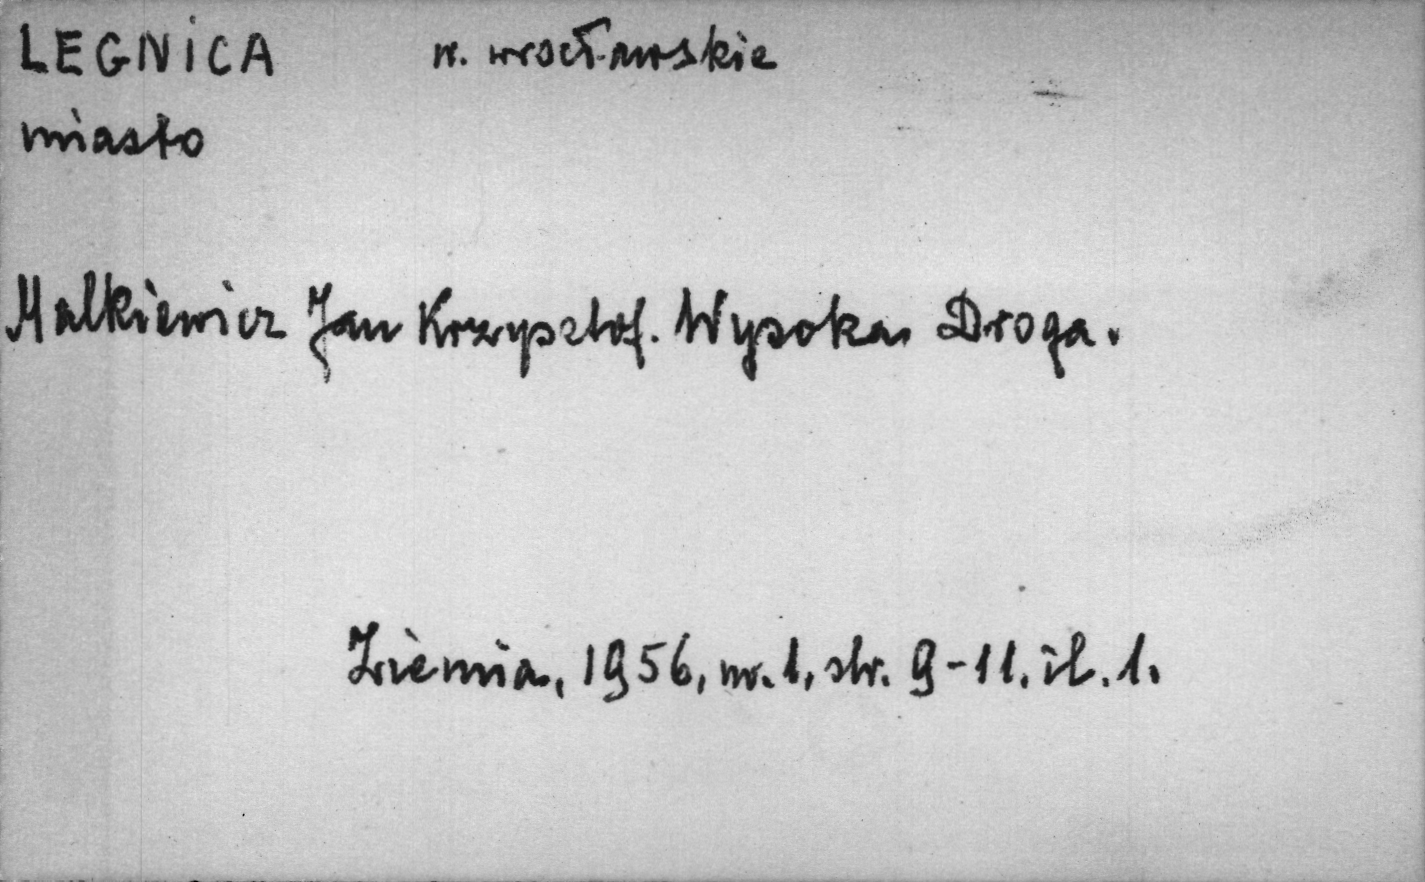 LEGNICA w. wrocławskie
miasto
Malkiewicz Jan Krzysztof. Wysoka Droga.
Ziemia, 1956, nr. 1, str. 9-11. il. 1.